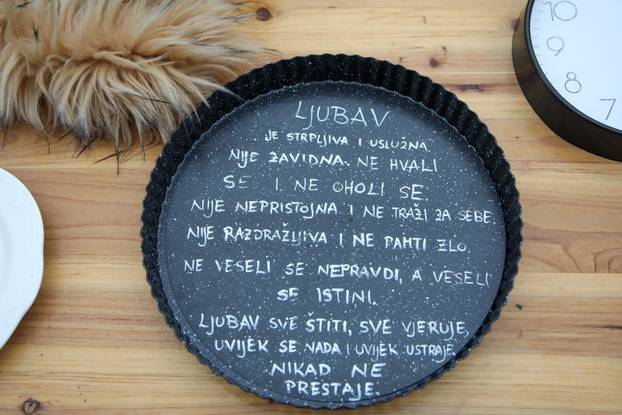 LJUBAV
JE STRPLJIVA I USLUŽNA.
NIJE ZAVIDNA. NE HVALI
SE I NE OHOLI SE.
NIJE NEPRISTOJNA I NE TRAŽI ZA SEBE.
NIJE RAZDRAŽLJIVA I NE PAMTI ZLO.
NE VESELI SE NEPRAVDI, A VESELI
SE ISTINI.
LJUBAV SVE ŠTITI, SVE VJERUJE,
UVIJEK SE NADA I UVIJEK USTRAJE.
NIKAD NE
PRESTAJE.
10
9
8
7